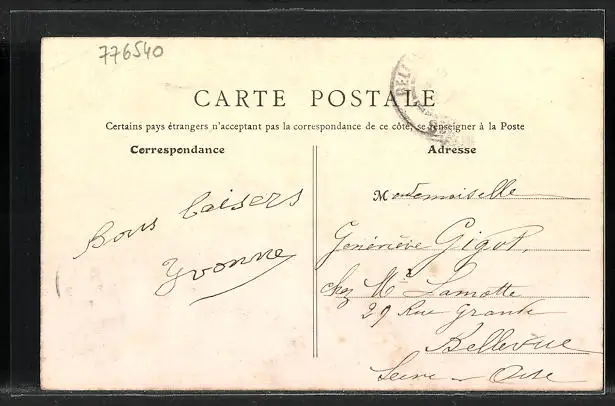 776540
CARTE POSTALE
Certains pays étrangers n'acceptant pas la correspondance de ce côté, se renseigner à la Poste
Correspondance
Adresse
Bons baisers
Yvonne
Mademoiselle
Geneviève Gigot,
chez Mr Lamotte
29 Rue
Bellevue
Seine - Oise